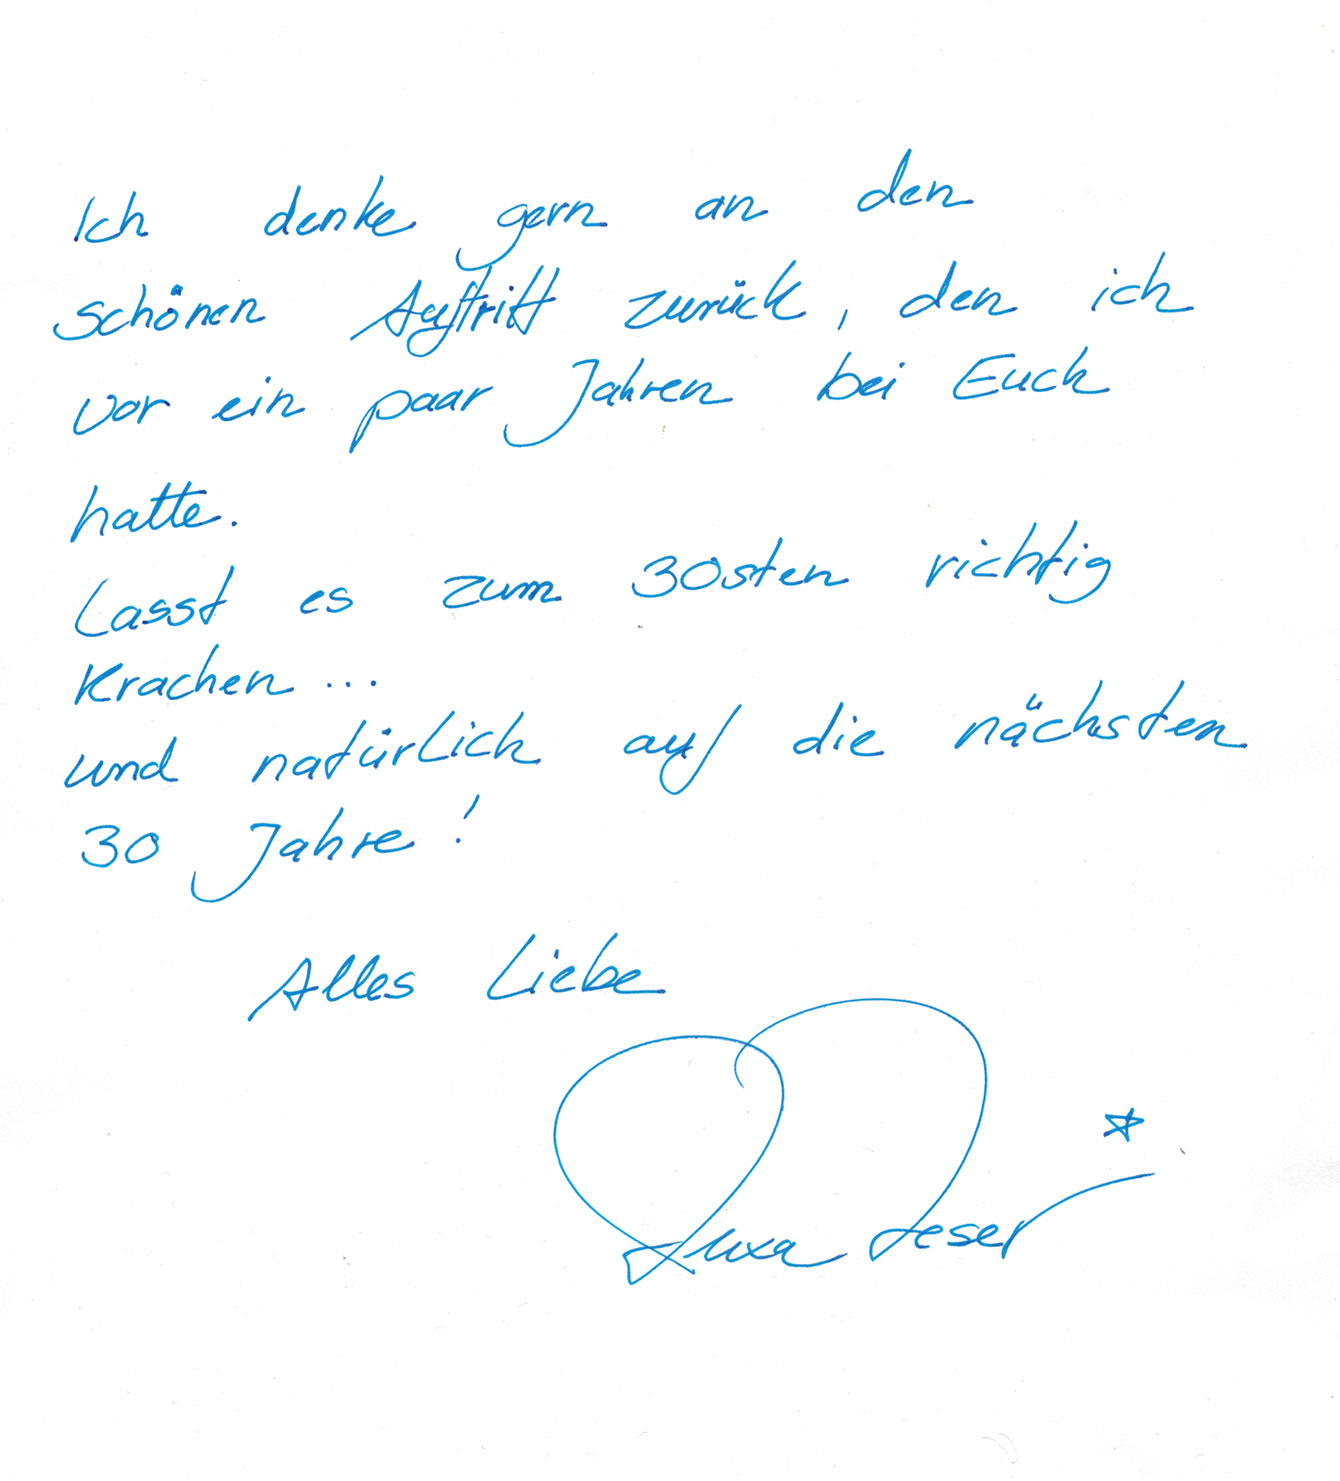 Ich denke gern an den
schönen Auftritt zurück, den ich
vor ein paar Jahren bei Euch
hatte.
Lasst es zum 30sten richtig
Krachen ...
und natürlich auf die nächsten
30 Jahre!
Alles Liebe